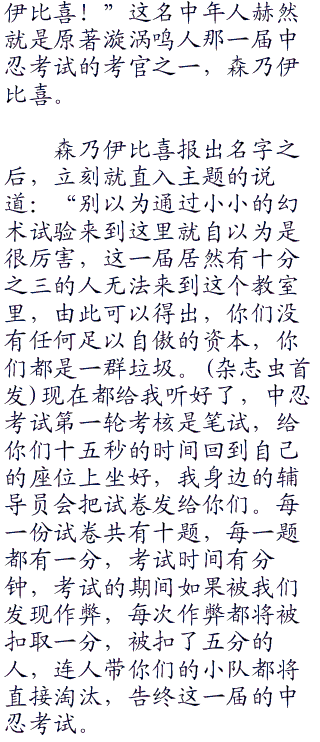 伊比喜！”这名中年人赫然
就是原著漩涡鸣人那一届中
忍考试的考官之一，森乃伊
比喜。
森乃伊比喜报出名字之
后，立刻就直入主题的说
道：“别以为通过小小的幻
术试验来到这里就自以为是
很厉害，这一届居然有十分
之三的人无法来到这个教室
里，由此可以得出，你们没
有任何足以自傲的资本，你
们都是一群垃圾。(杂志虫首
发)现在都给我听好了，中忍
考试第一轮考核是笔试，给
你们十五秒的时间回到自己
的座位上坐好，我身边的辅
导员会把试卷发给你们。每
一份试卷共有十题，每一题
都有一分，考试时间有分
钟，考试的期间如果被我们
发现作弊，每次作弊都将被
扣取一分，被扣了五分的
人，连人带你们的小队都将
直接淘汰，告终这一届的中
忍考试。